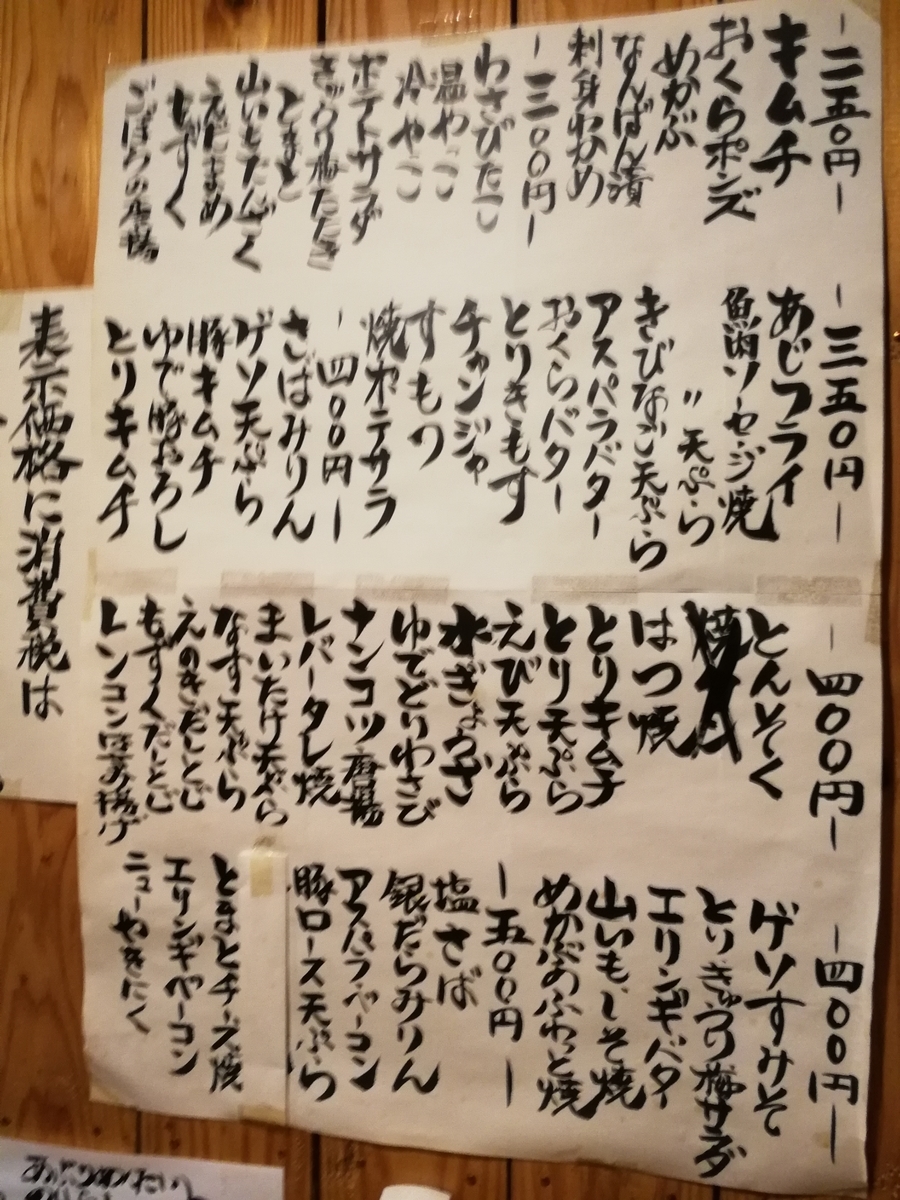 －二五〇円－
キムチ
おくらポンズ
めかぶ
なんばん漬
刺身わかめ
－三〇〇円－
わさびたこ
温やっこ
冷やっこ
ポテトサラダ
きゅうり梅たたき
とまと
山いもたんざく
えだまめ
もずく
ごぼうの唐揚
－三五〇円－
あじフライ
魚肉ソーセージ焼
〃 天ぷら
きびなご天ぷら
アスパラバター
おくらバター
とりきもす
チャンジャ
すもつ
焼ポテサラ
－四〇〇円－
さばみりん
ゲソ天ぷら
豚キムチ
ゆで豚おろし
とりキムチ
－四〇〇円－
とんそく
はつ焼
とりキムチ
とり天ぷら
えび天ぷら
水ぎょうざ
ゆでどりわさび
ナンコツ唐揚
レバータレ焼
まいたけ天ぷら
なす天ぷら
えのきだしとじ
もずくだしとじ
レンコンはさみ揚げ
－四〇〇円－
ゲソすみそ
とりきゅうり梅サラダ
エリンギバター
山いもしそ焼
めかぶのふわっと焼
－五〇〇円－
塩さば
銀だらみりん
アスパラベーコン
豚ロース天ぷら
とまとチーズ焼
エリンギベーコン
ニューやきにく
表示価格に消費税は